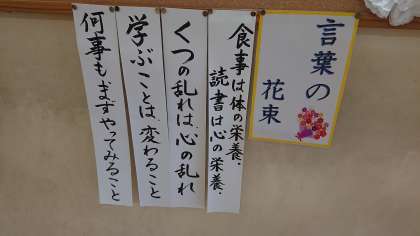 言葉の
花束
食事は体の栄養・
読書は心の栄養・
くつの乱れは、心の乱れ
学ぶことは、変わること
何事もまずやってみること